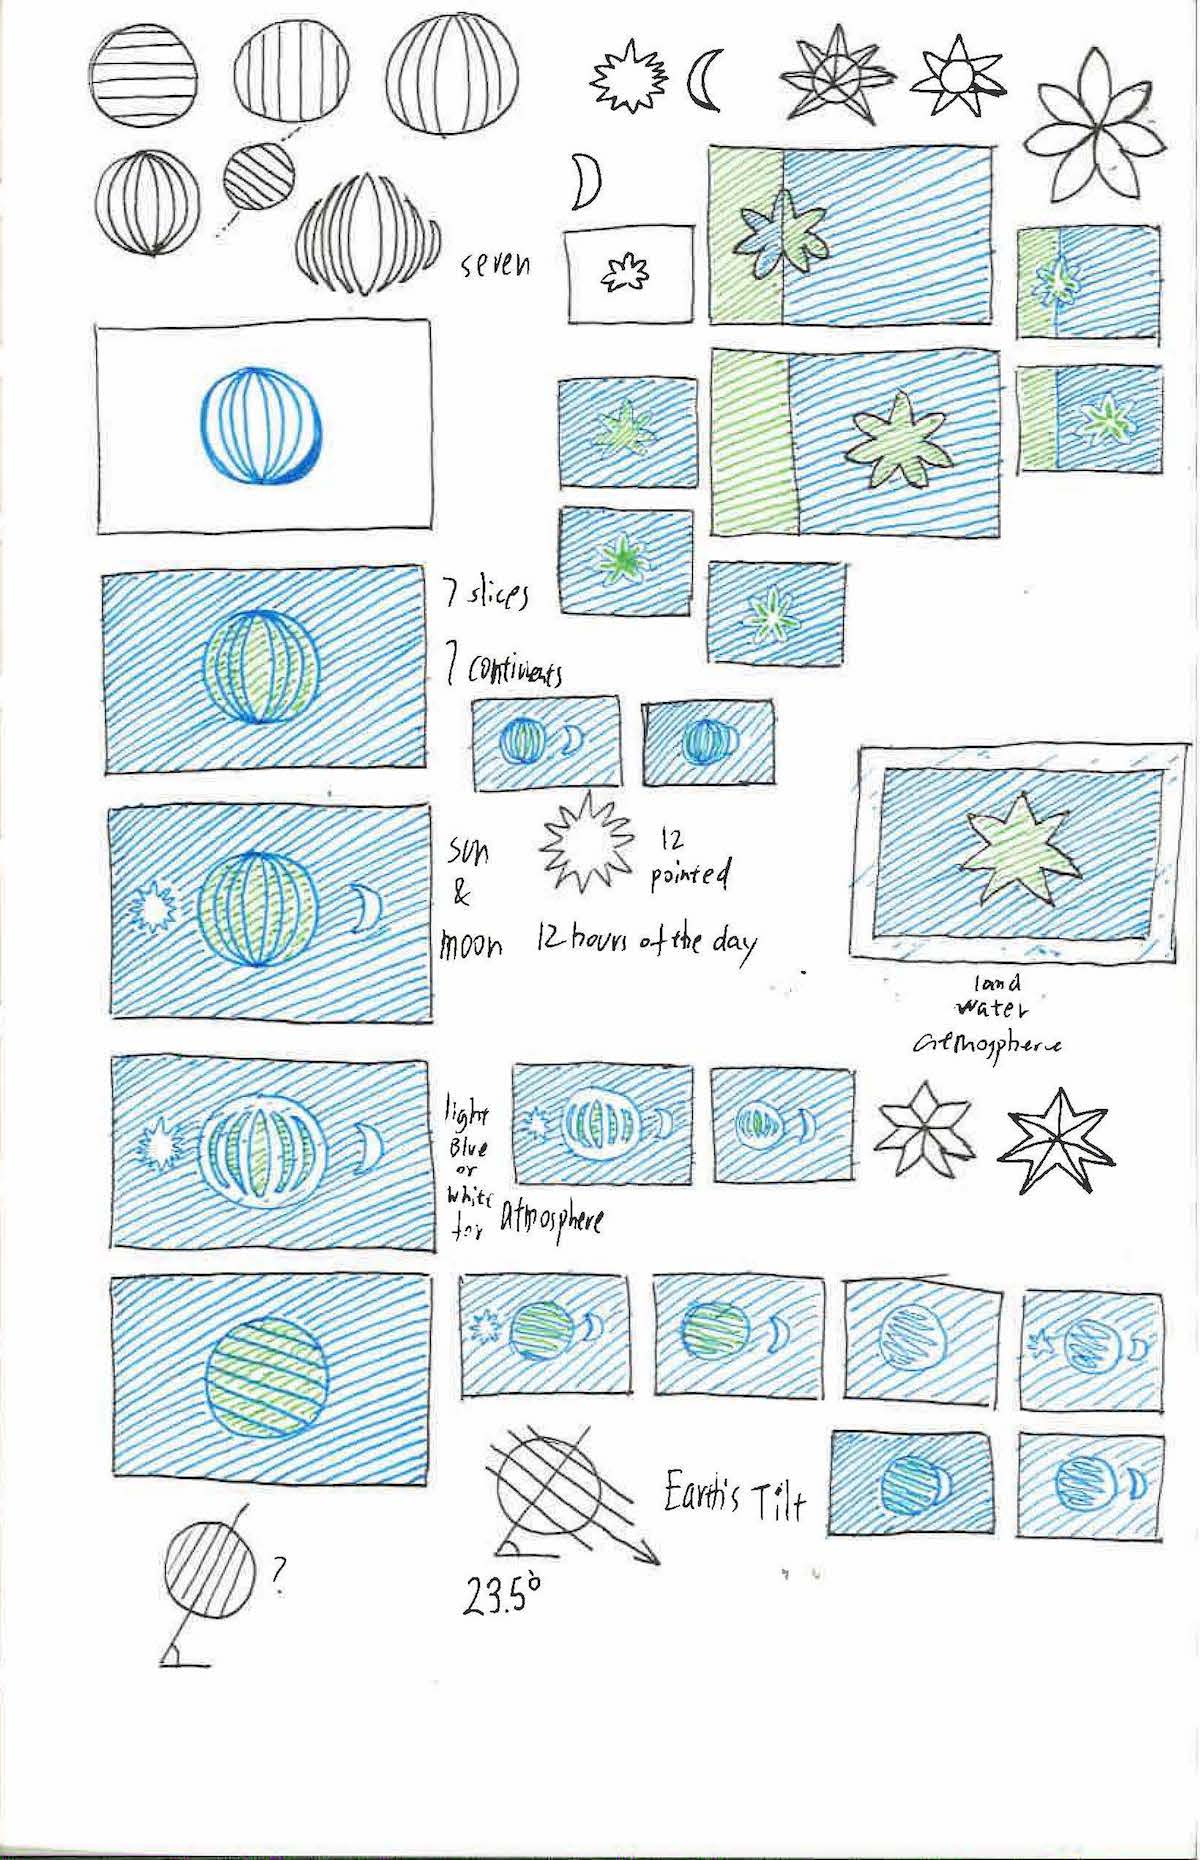 seven
7 slices
7 continents
sun
&
moon
12
pointed
12 hours of the day
land
water
atmosphere
light
Blue
or
white
for Atmosphere
Earth's Tilt
?
23.5°